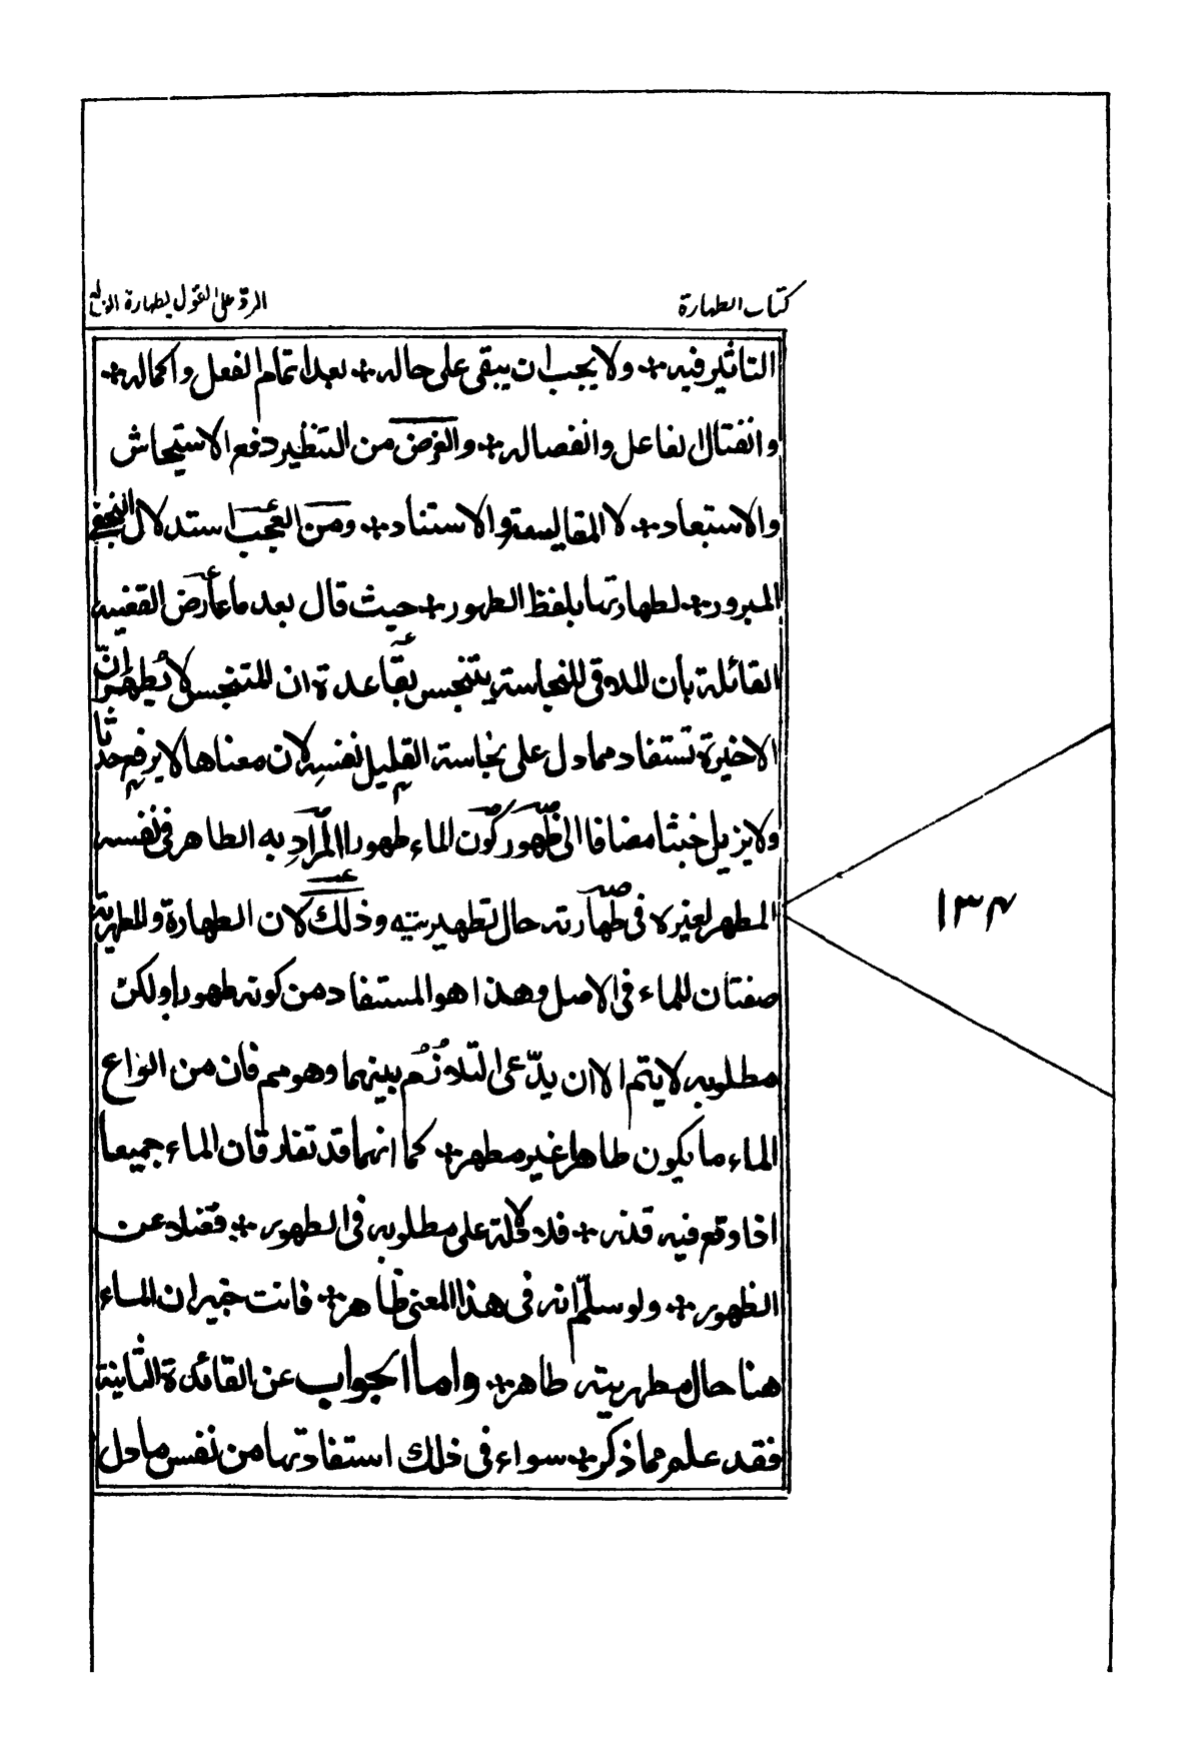 كتاب الطهارة
الردّ على القول بطهارة
التاثير فيه + ولا يجب ان يبقى على حاله + بعد اتمام الفعل واكماله +
وانفتال الفاعل وانفصاله + والغرض من التنظير دفع الاستيحاش
والاستبعاد + لا المقايسة والاستناد + ومن العجب استدلال النجفي
المبرور + لطهارتها بلفظ الطهور + حيث قال بعد ما عارض القضيه
القائلة بأن الملاقي للنجاسة يتنجس بقاعدة ان المتنجس لا يُطهّر انّ
الاخيرة تستفاد مما دل على نجاسة القليل نفسه لان معناها لا يرفع حدثا
ولا يزيل خبثا مضافا الى ظهور كون الماء طهورا المراد به الطاهر في نفسه
المطهر لغيره في طهارته حال تطهيريته وذلك لان الطهارة والمطهرية
١٣٤
صفتان للماء في الاصل وهذا هو المستفاد من كونه طهورا ولكن
مطلوبه لا يتم الا ان يدّعى التلازُم بينهما وهو مم فان من انواع
الماء ما يكون طاهرا غير مطهر + كما انهما قد تفارقان الماء جميعا
اذا وقع فيه قذر + فلا دلالة على مطلوبه في الطهور + فضلا عن
الظهور + ولو سلّم انه في هذا المعنى ظاهر + فانت خبير ان الماء
هنا حال مطهريته طاهر + واما الجواب عن القائدة الثانية
فقد علم مما ذكر + سواء في ذلك استفادتها من نفس ما دل